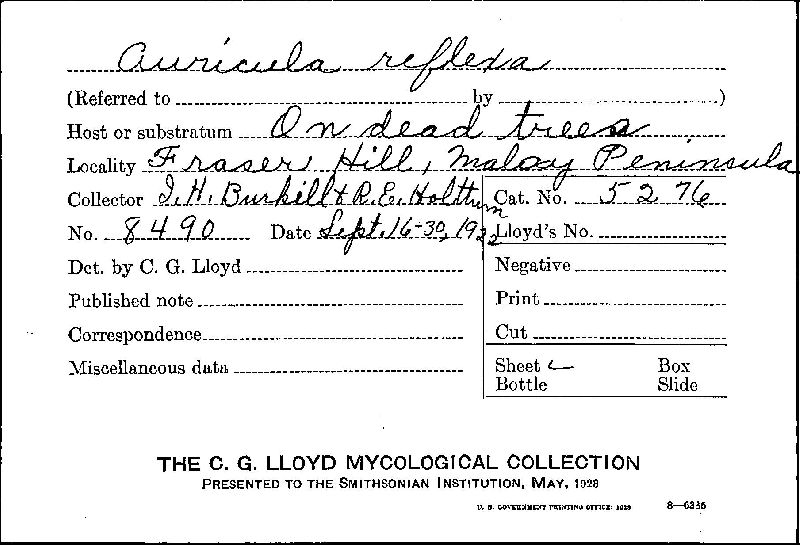 Auricula reflexa
(Referred to by )
Host or substratum On dead trees
Locality Fraser Hill, Malay Peninsula
Collector I.H. Burkill & R.E. Holttum
Cat. No. 5276
No. 8490 Date Sept. 16-30, 1922
Lloyd's No.
Det. by C. G. Lloyd
Negative
Published note
Print
Correspondence
Cut
Miscellaneous data
Sheet Box
Bottle Slide
THE C. G. LLOYD MYCOLOGICAL COLLECTION
PRESENTED TO THE SMITHSONIAN INSTITUTION, MAY, 1928
U. S. GOVERNMENT PRINTING OFFICE: 1928
8—6235